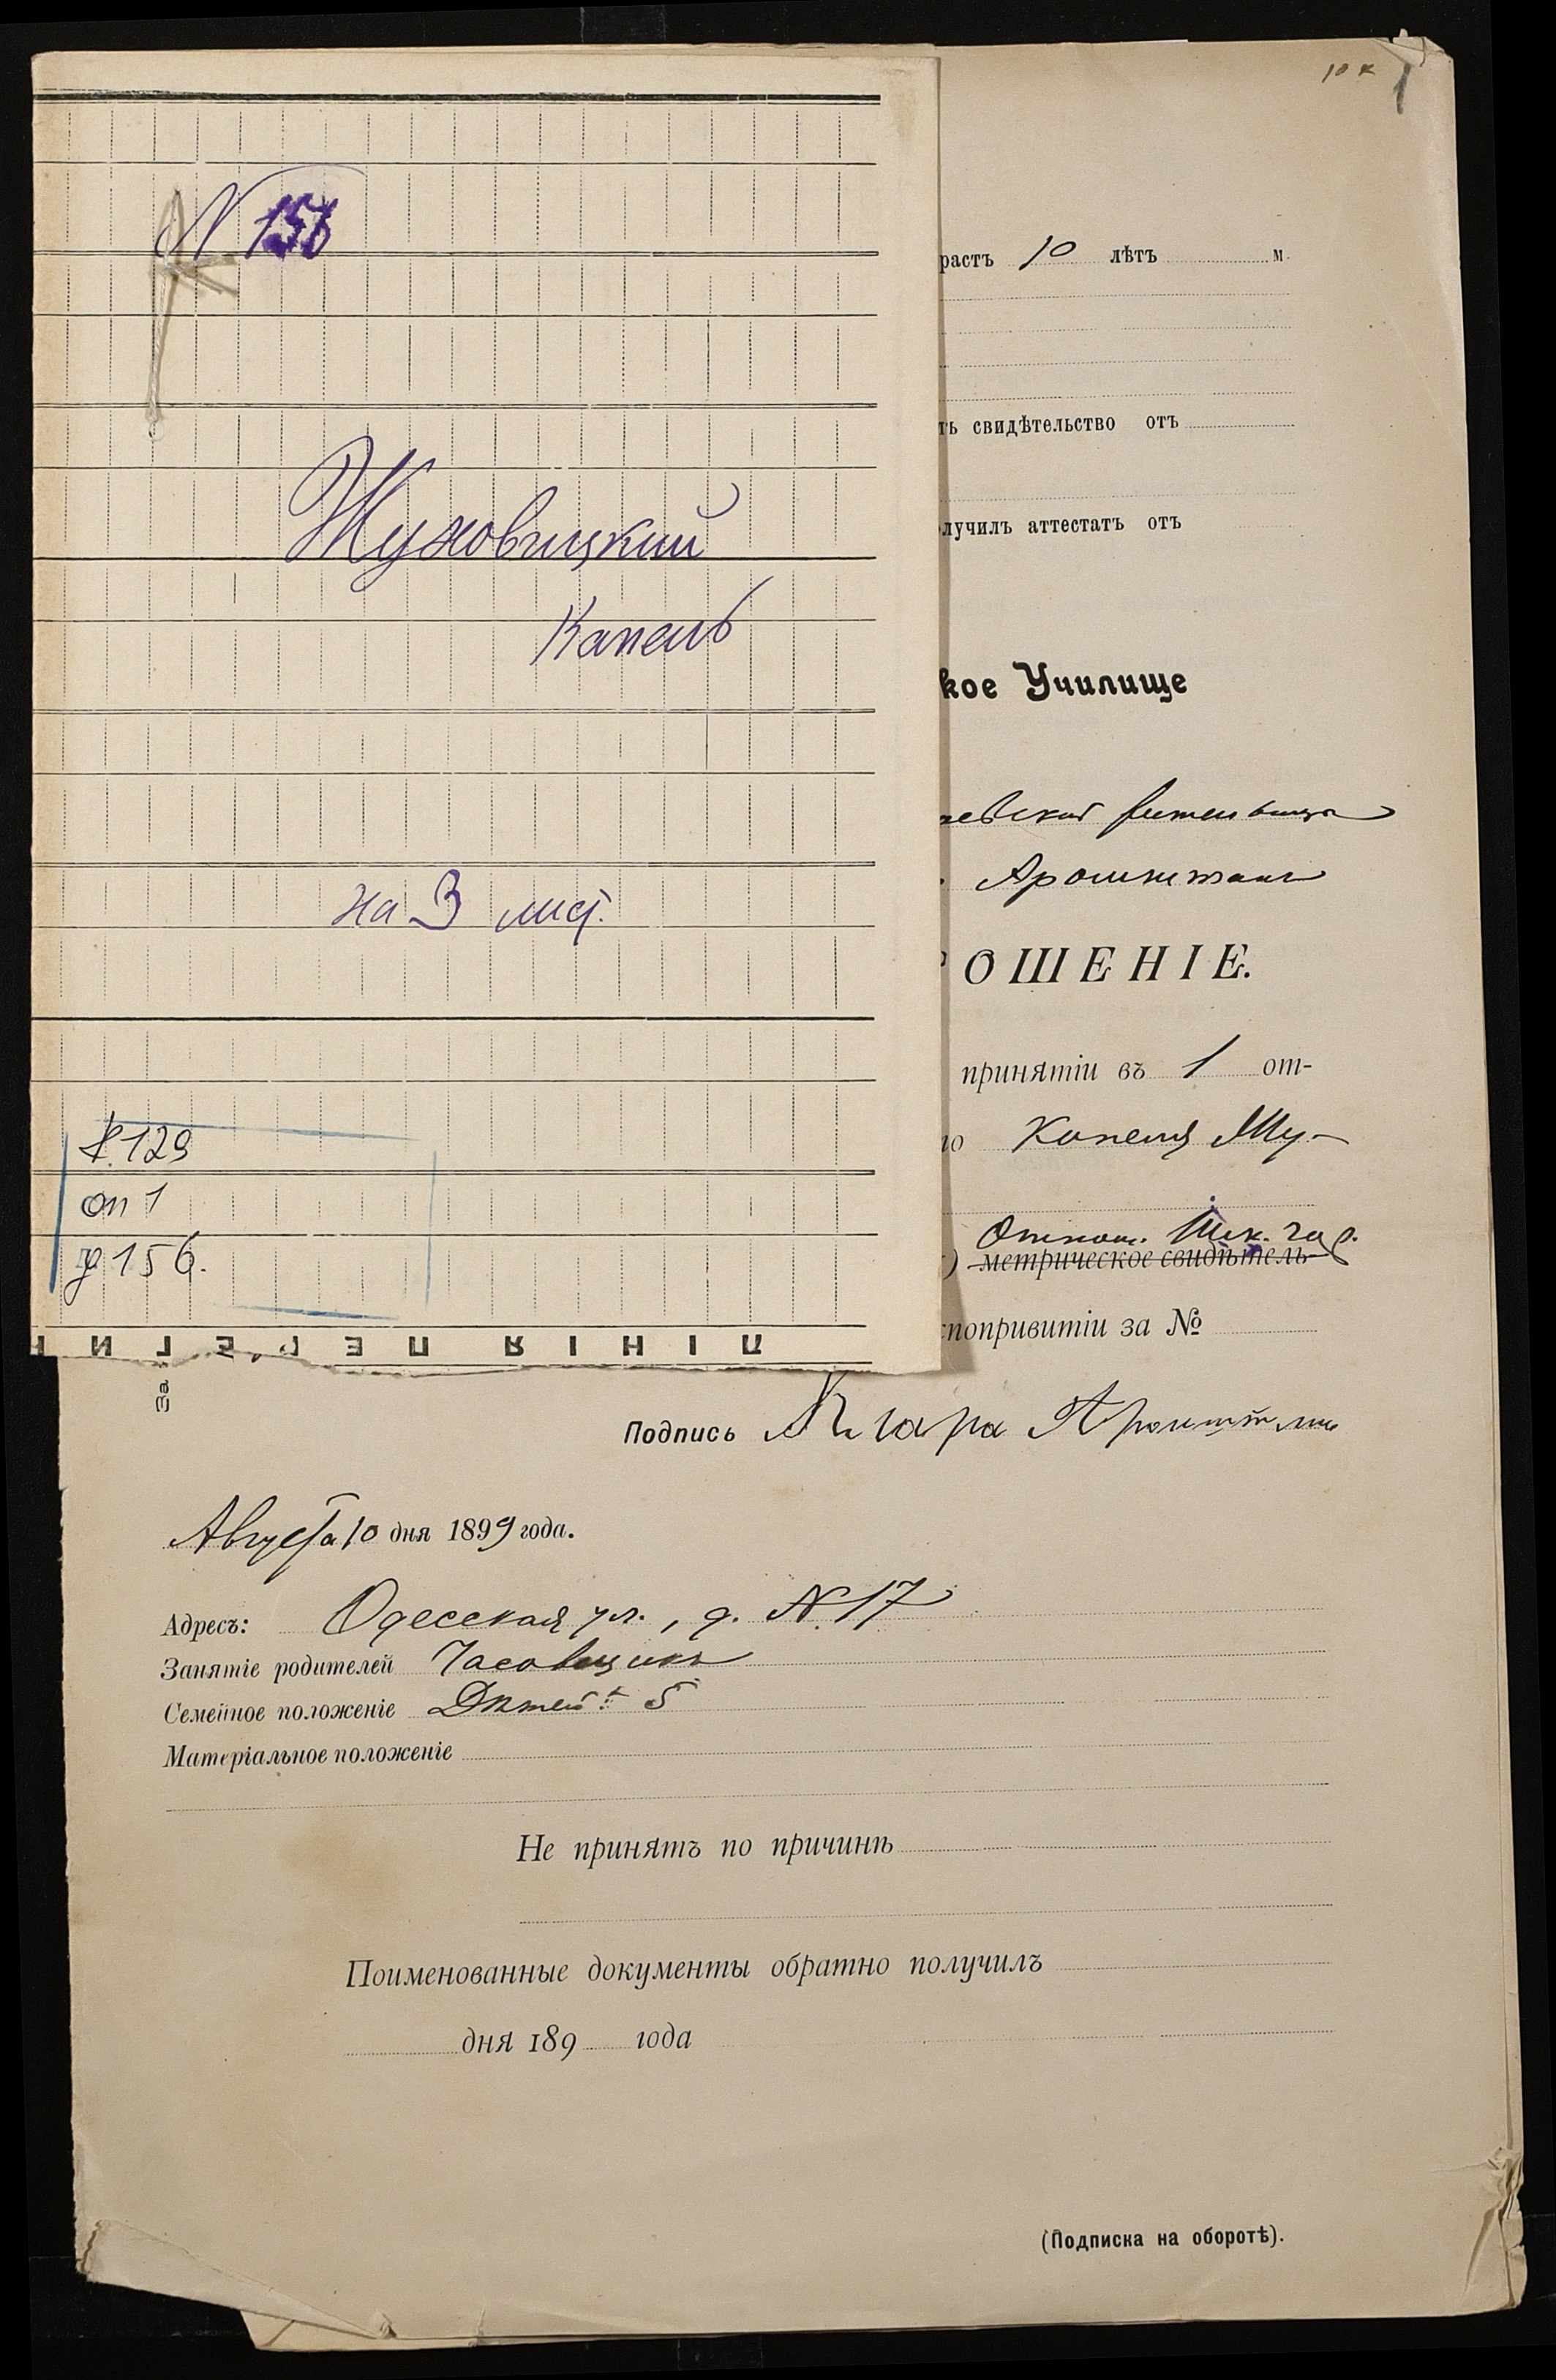 N 156
Жуховицкий
Капель
на 3 лист.
Ф. 129
оп 1
д 156.
ЛІНІЯ ПЕРЕГИ
За
10 к
1
растъ 10 лѣтъ м.
ть свидѣтельство отъ
лучилъ аттестатъ отъ
кое Училище
Арошштамъ
ОШЕНІЕ.
принятіи въ 1 от-
ю Капеля Жу-
) метрическое свидѣтель-
попривитіи за №
Подпись
Августа 10 дня 1899 года.
Адресъ: Одесская ул., д. N. 17
Занятіе родителей Часовщикъ
Семейное положеніе Дѣтей: 5
Матеріальное положеніе
Не принятъ по причинѣ
Поименованные документы обратно получилъ
дня 189 года
(Подписка на оборотѣ).